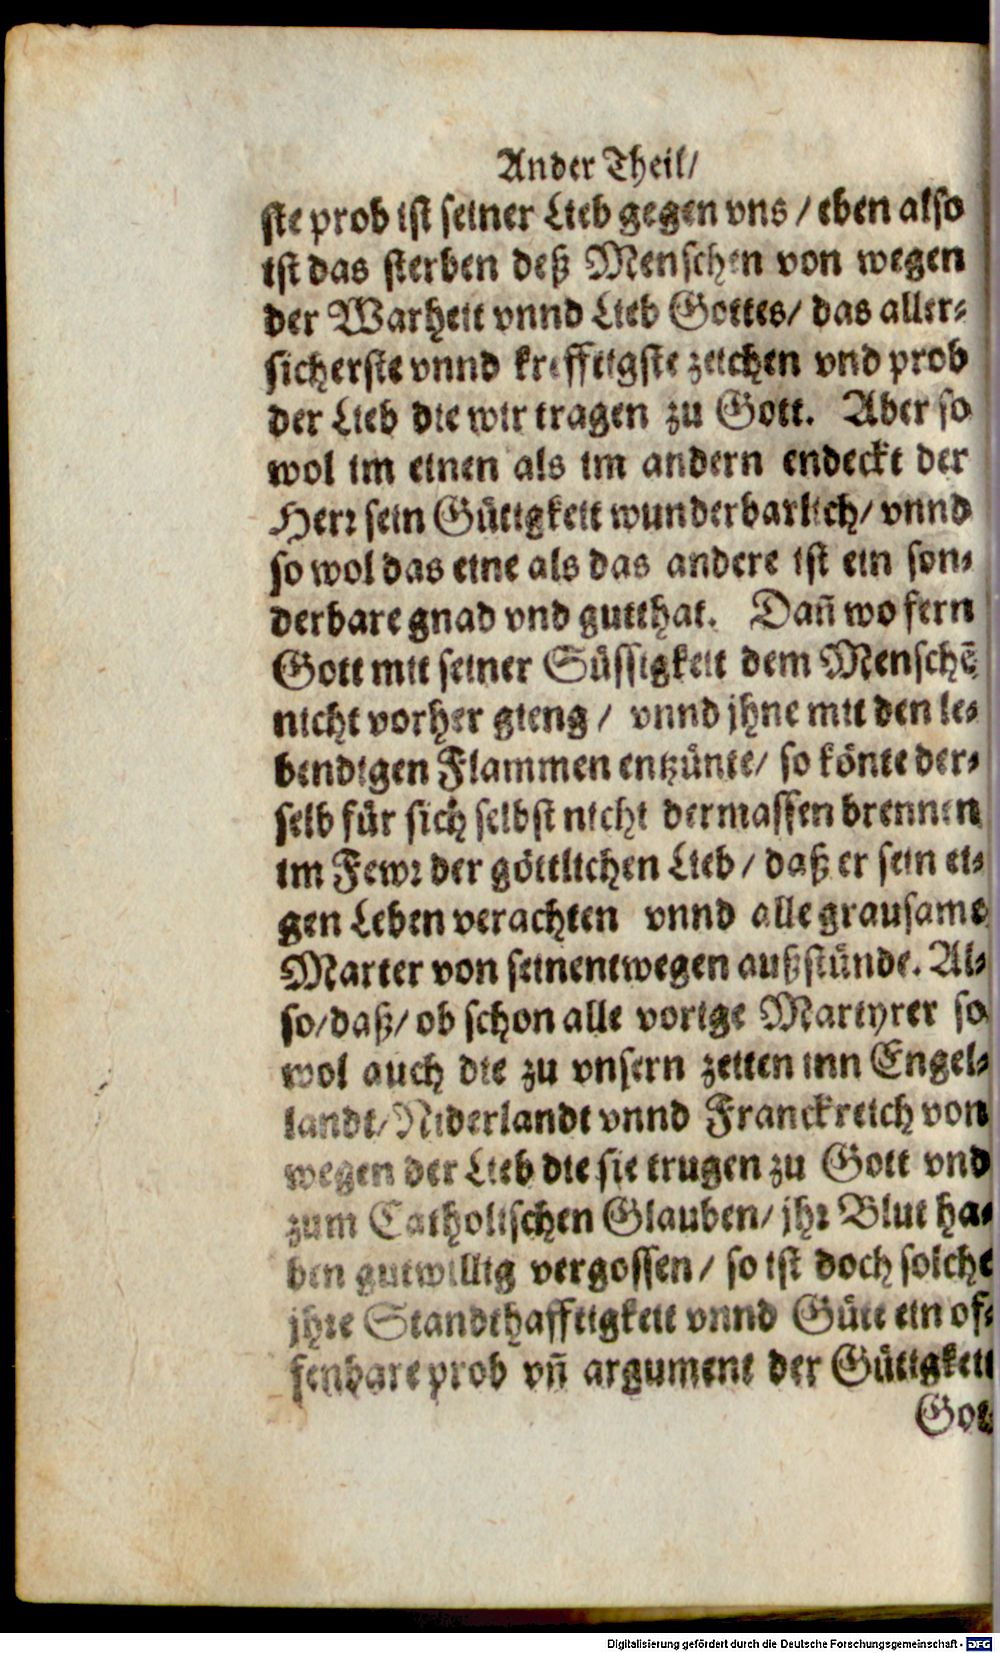 Ander Theil/
ste prob ist seiner Lieb gegen vns / eben also
ist das sterben deß Menschen von wegen
der Warheit vnnd Lieb Gottes/ das aller-
sicherste vnnd krefftigste zeichen vnd prob
der Lieb die wir tragen zu Gott. Aber so
wol im einen als im andern endeckt der
Herr sein Gütigkeit wunderbarlich/ vnnd
so wol das eine als das andere ist ein son-
derbare gnad vnd gutthat. Dañ wo fern
Gott mit seiner Süssigkeit dem Menschẽ
nicht vorher gieng / vnnd jhne mit den le-
bendigen Flammen entzünte/ so könte der-
selb für sich selbst nicht dermassen brennen
im Fewr der göttlichen Lieb / daß er sein ei-
gen Leben verachten vnnd alle grausame
Marter von seinentwegen außstünde. Al-
so/daß/ ob schon alle vorige Martyrer so
wol auch die zu vnsern zeiten inn Engel-
landt/Niderlandt vnnd Franckreich von
wegen der Lieb die sie trugen zu Gott vnd
zum Catholischen Glauben/ jhr Blut ha-
ben gutwillig vergossen/ so ist doch solche
jhre Standthafftigkeit vnnd Güte ein of-
fenbare prob vñ argument der Gütigkeit
Got-
Digitalisierung gefördert durch die Deutsche Forschungsgemeinschaft - DFG